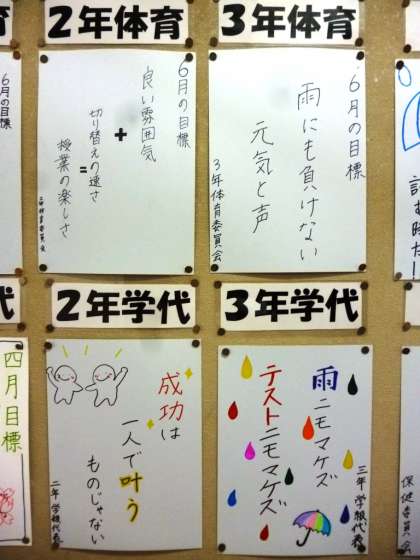 2年体育
3年体育
6月の目標
良い雰囲気
+
切り替えの速さ
=
授業の楽しさ
二年体育委員会
6月の目標
雨にも負けない
元気と声
3年体育委員会
6月の目標
2年学代
3年学代
成功は
一人で叶う
ものじゃない
二年学級代表
雨ニモマケズ
テストニモマケズ
三年学級代表
四月目標
保健委員会